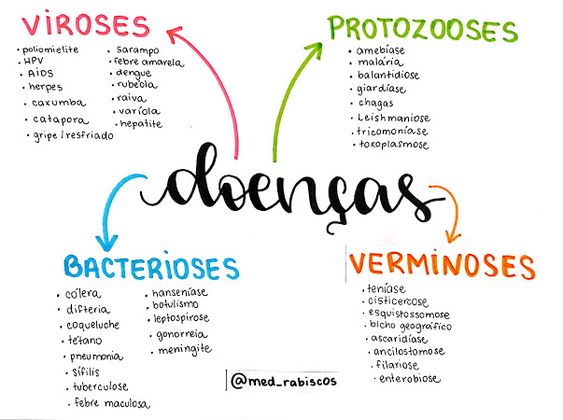 VIROSES
• poliomielite
• HPV
• AIDS
• herpes
• caxumba
• catapora
• gripe/resfriado
• sarampo
• febre amarela
• dengue
• rubéola
• raiva
• varíola
• hepatite
PROTOZOOSES
• amebíase
• malária
• balantidiose
• giardíase
• chagas
• Leishmaniose
• tricomoníase
• toxoplasmose
doenças
BACTERIOSES
• cólera
• difteria
• coqueluche
• tétano
• pneumonia
• sífilis
• tuberculose
• febre maculosa
• hanseníase
• botulismo
• leptospirose
• gonorreia
• meningite
VERMINOSES
• teníase
• cisticercose
• esquistossomose
• bicho geográfico
• ascaridíase
• ancilostomose
• filariose
• enterobiose
@med_rabiscos